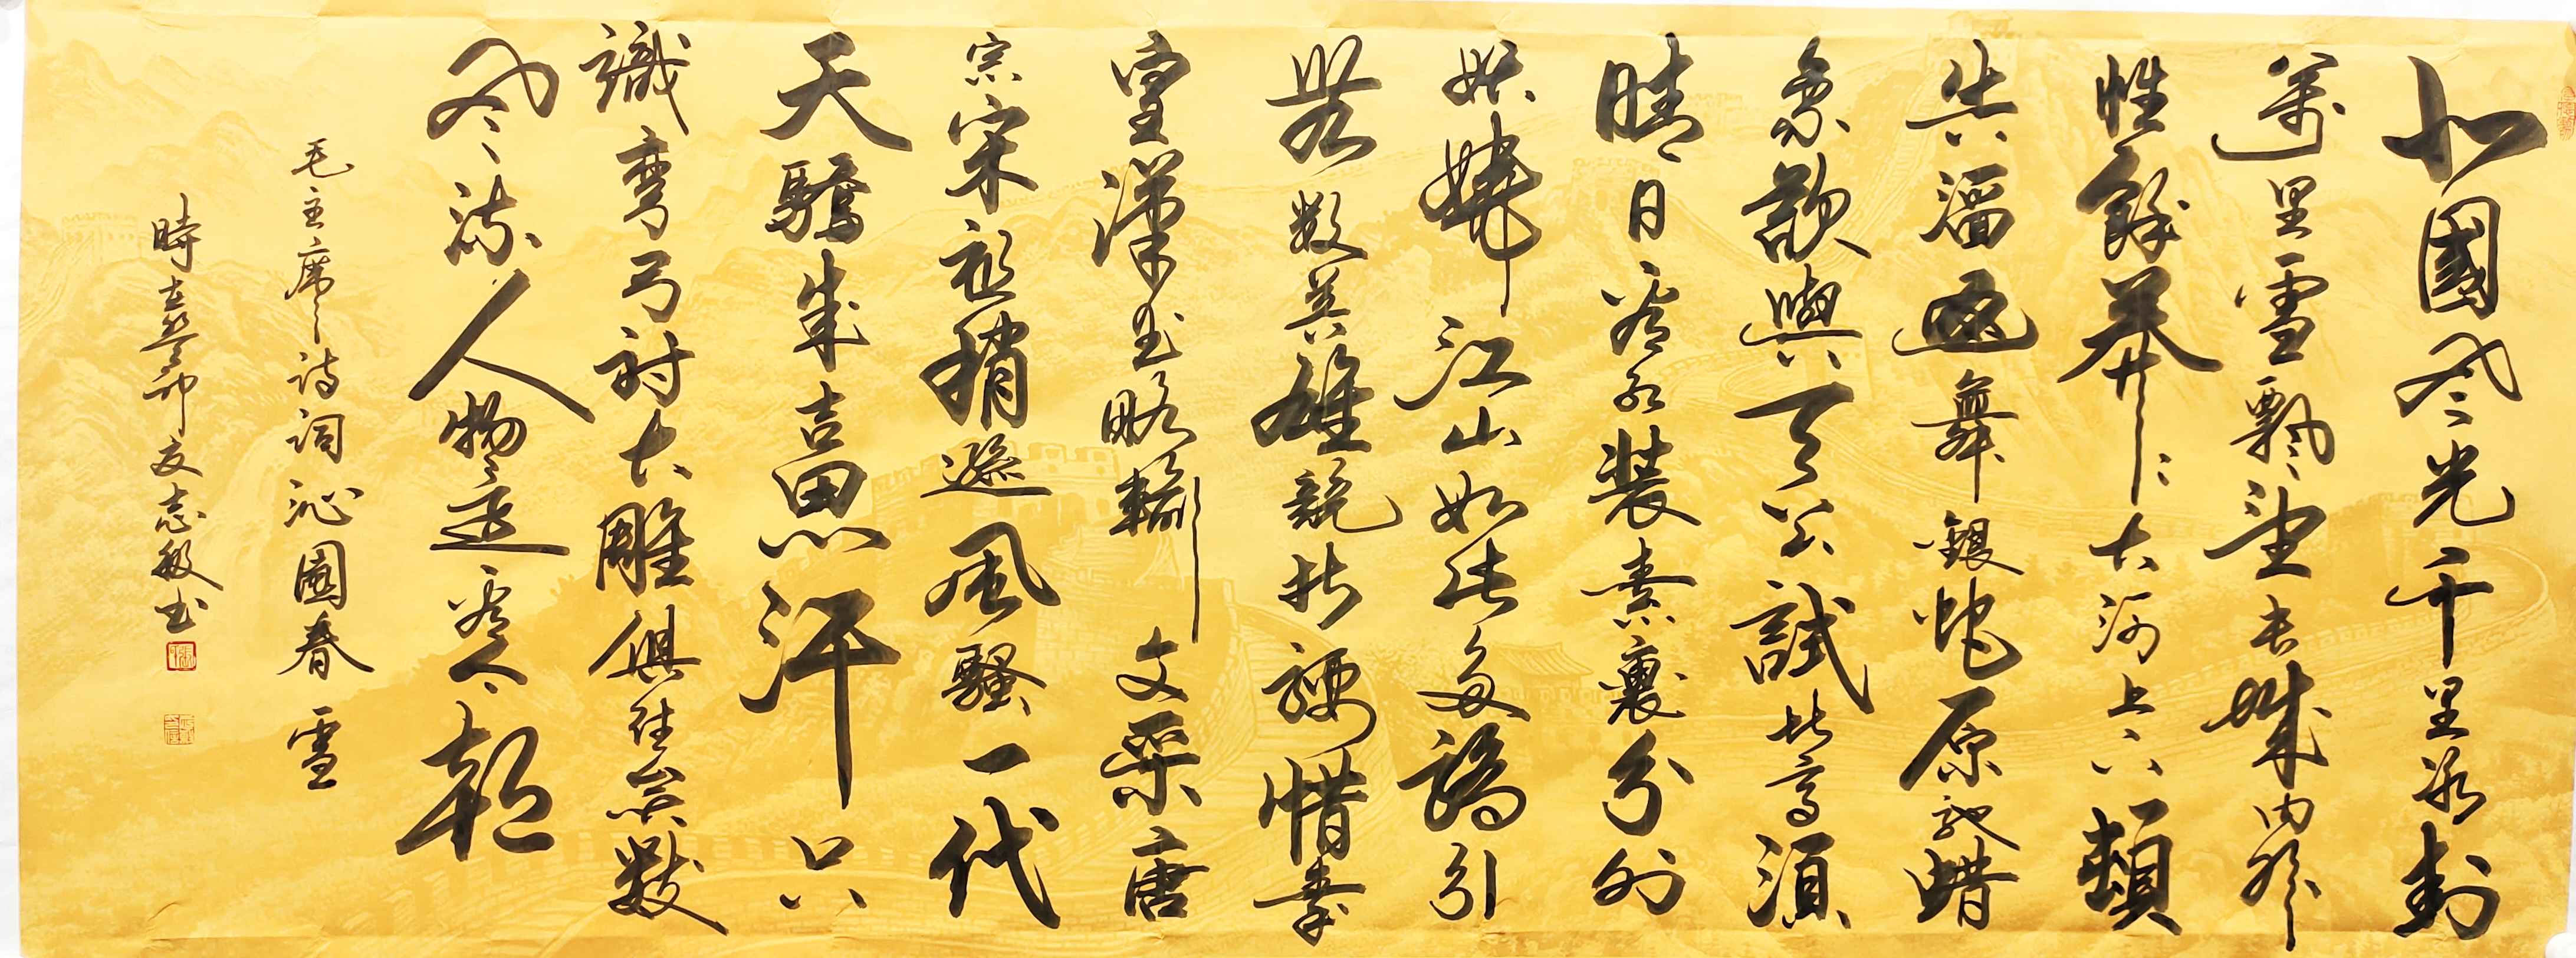 北國風光千里冰封
萬里雪飄望長城内外
惟餘莽莽大河上下頓
失滔舞銀蛇原馳蜡
象欲與天公試比高須
晴日看紅裝素裹分外
妖嬈江山如此多嬌引
無數英雄競折腰惜秦
皇漢武略輸文采唐
宗宋祖稍遜風騷一代
天驕成吉思汗只
識彎弓射大雕俱往矣數
風流人物還看今朝
毛主席詩詞沁園春 雪
時在癸卯夏志敏书